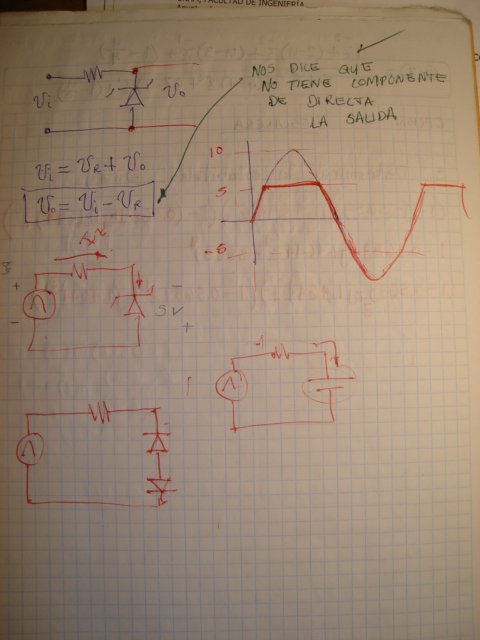 FACULTAD DE INGENIERÍA
NOS DICE QUE
NO TIENE COMPONENTE
DE DIRECTA
LA SALIDA
Vi
Vo
Vi = VR + Vo
Vo = Vi - VR
10
5
-5
+
-
-
5V
+